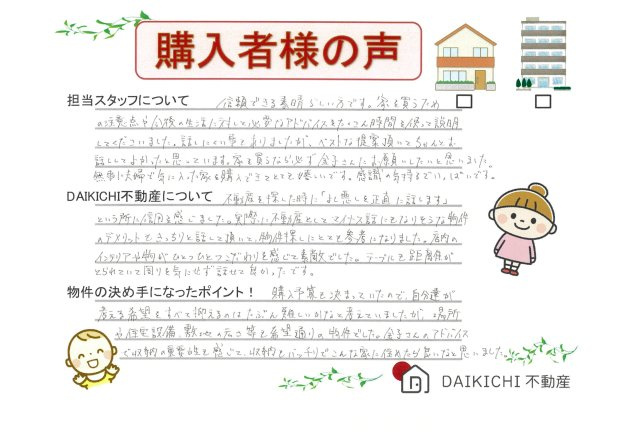 購入者様の声
担当スタッフについて 信頼できる素晴らしい方です。家を買うため
の注意点や今後の生活に対して必要なアドバイスをたくさん時間を使って説明
してくださいました。話しにくい事もありましたが、ベストな提案頂いてちゃんとお
話ししてよかったと思っています。家を買うなら必ず金子さんにお願いしたいと思いました。
無事に夫婦で気に入った家を購入できてとても嬉しいです。感謝の気持ちでいっぱいです。
DAIKICHI不動産について 不動産を探した時に「よし悪しを正直に話します」
という所に信用を感じました。実際に不動産としてマイナス話にもなりそうな物件
のデメリットもきっちりと話して頂いて、物件探しにとても参考になりました。店内の
インテリアや物がひとつひとつこだわりを感じて素敵でした。テーブルも距離感が
とられていて周りを気にせず話せて良かったです。
物件の決め手になったポイント! 購入予算も決まっていたので、自分達が
考える希望をすべて抑えるのはたぶん難しいかなと考えていましたが、場所
や住宅設備、敷地の広さ等も希望通りの物件でした。金子さんのアドバイス
で収納の重要性も感じて、収納もバッチリでこんな家に住めたら良いなと思いました。
DAIKICHI 不動産